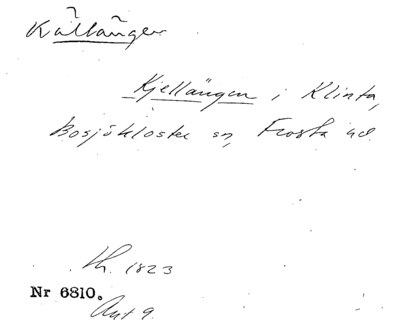 Källängen
Kjellängen i Klinta,
Bosjökloster sn, Frosta hd
Lh. 1823
Nr 6810.
Ant 9.